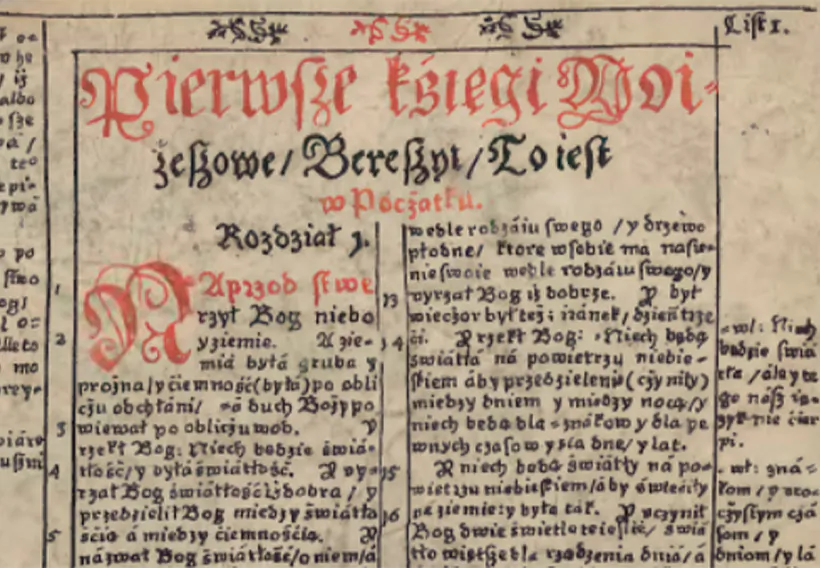 List 1.
Pierwsze księgi Moi⸗
żeszowe/ Bereszyt/ To iest
w Początku.
Rozdział 1.
NAprzod stwo
rzył Bog niebo
y ziemie. A zie⸗
miá byłá gruba y
prożna/ y ćiemność (była) po obli
cżu obchłáni/ ⸗á duch Boży po
wiewał po obliczu wod. Y
rzekł Bog: Niech będzie świá⸗
tłość/ y byłá świátłość. Y vy⸗
rzał Bog świátłość iż dobra/ y
przedzielił Bog miedzy świátło
śćią á miedzy ćiemnośćią. Y
názwał Bog świátłość/ o niem/ á
1
2
3
4
5
wedle rodzáiu swego / y drzewo
płodne/ ktore w sobie ma nasie⸗
nie swoie wedle rodzáiu swego/ y
vyrzał Bog iż dobrze. Y był
wiecżor był też: záranek/ dzień trze
ći. Y rzekł Bog: ⸗Niech będą
świátłá ná powietrzu niebie⸗
skiem áby przedzielenie (cżyniły)
miedzy dniem y miedzy nocą/ y
niech będą dla ⸗znákow y dla pe
wnych cżasow y dla dne/ y lat.
Y niech będą świátły ná po⸗
wietrzu niebieskiem/ áby świećiły
ná ziemie: y było ták. Y vcżynił
Bog dwie świetle wielkie/ świá
tło więtsze dla rządzenia dniá/ á
13
14
15
16
⸗wł: Niech
będzie świá
tła / ále yte
go nász ię⸗
zyk nie ćier
pi.
. wł: zná⸗
kom / y vro⸗
cżystym cżá
som / y
dniom/ y lá